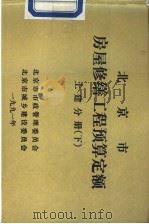 北京市
房屋修缮工程预算定额
土建分册(下)
北京市市政管理委员会
北京市城乡建设委员会
一九九一年